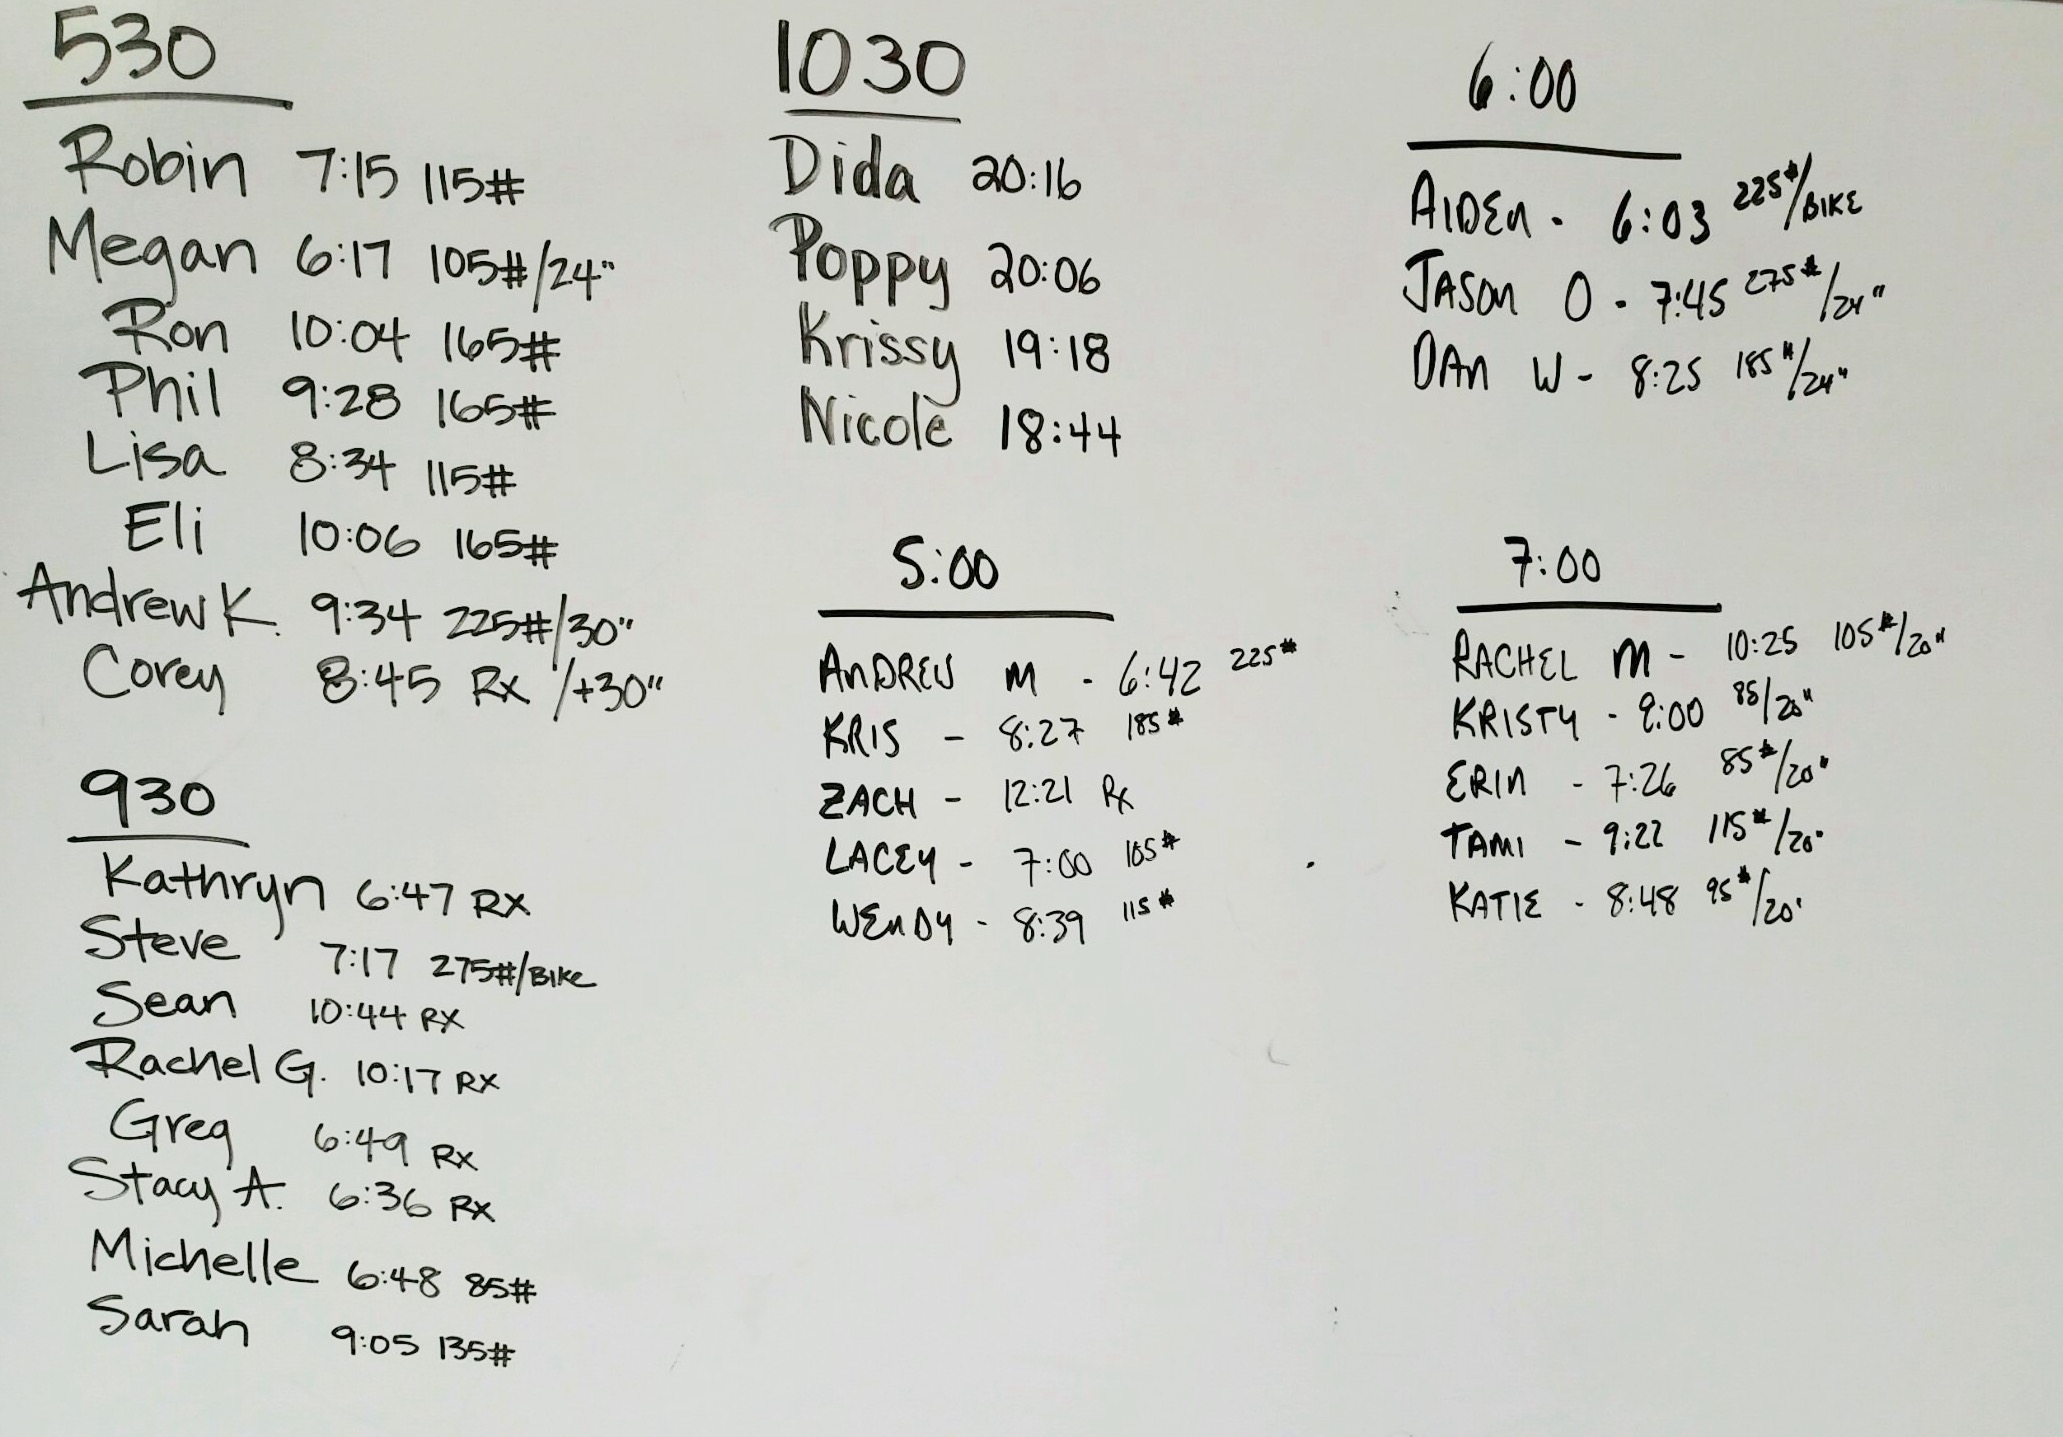 530
Robin 7:15 115#
Megan 6:17 105#/24"
Ron 10:04 165#
Phil 9:28 165#
Lisa 8:34 115#
Eli 10:06 165#
Andrew K. 9:34 225#/30"
Corey 8:45 Rx /+30"
930
Kathryn 6:47 RX
Steve 7:17 275#/BIKE
Sean 10:44 RX
Rachel G. 10:17 RX
Greg 6:49 RX
Stacy A. 6:36 RX
Michelle 6:48 85#
Sarah 9:05 135#
1030
Dida 20:16
Poppy 20:06
Krissy 19:18
Nicole 18:44
5:00
ANDREW M - 6:42 225#
KRIS - 8:27 185#
ZACH - 12:21 Rx
LACEY - 7:00 105#
WENDY - 8:39 115#
6:00
AIDEN - 6:03 225#/BIKE
JASON O - 7:45 275#/24"
DAN W - 8:25 185#/24"
7:00
RACHEL M - 10:25 105#/20"
KRISTY - 85/20"
ERIN - 7:26 85#/20"
TAMI - 9:22 115#/20"
KATIE - 8:48 95#/20"